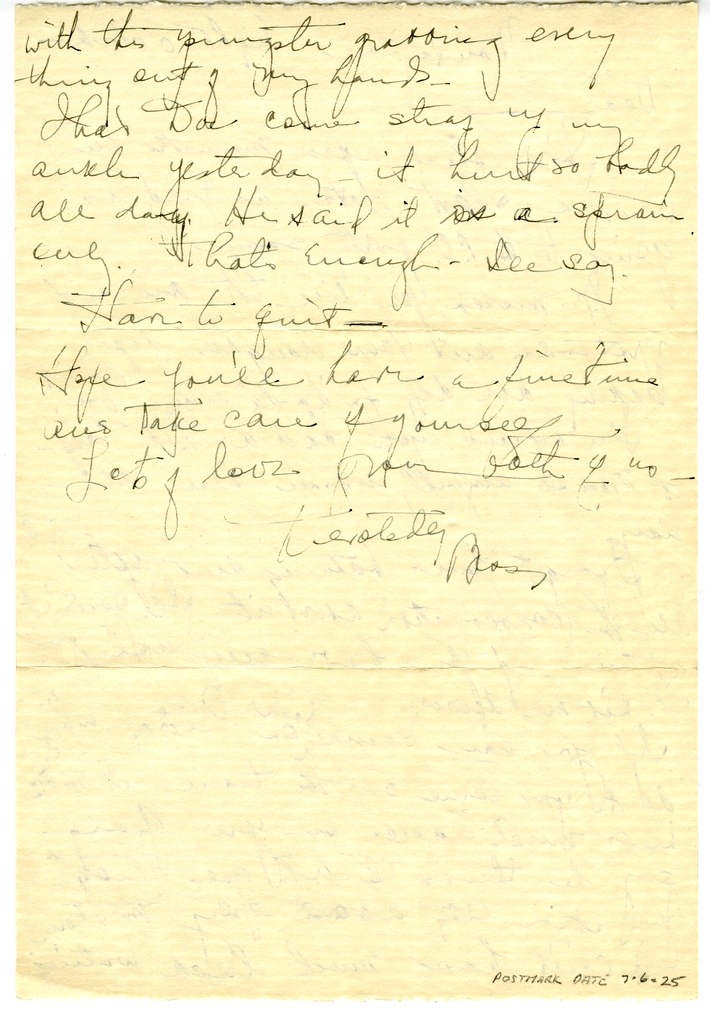 with this youngster grabbing every
thing out of my hands -
I had Doc come strap up my
ankle yesterday - it hurt so badly
all day. He said it is a sprain
only. That's enough - I'll say.
Have to quit -
Hope you'll have a fine time
and take care of yourself.
Lots of love from both of us -
Devotedly
POSTMARK DATE 7-6-25